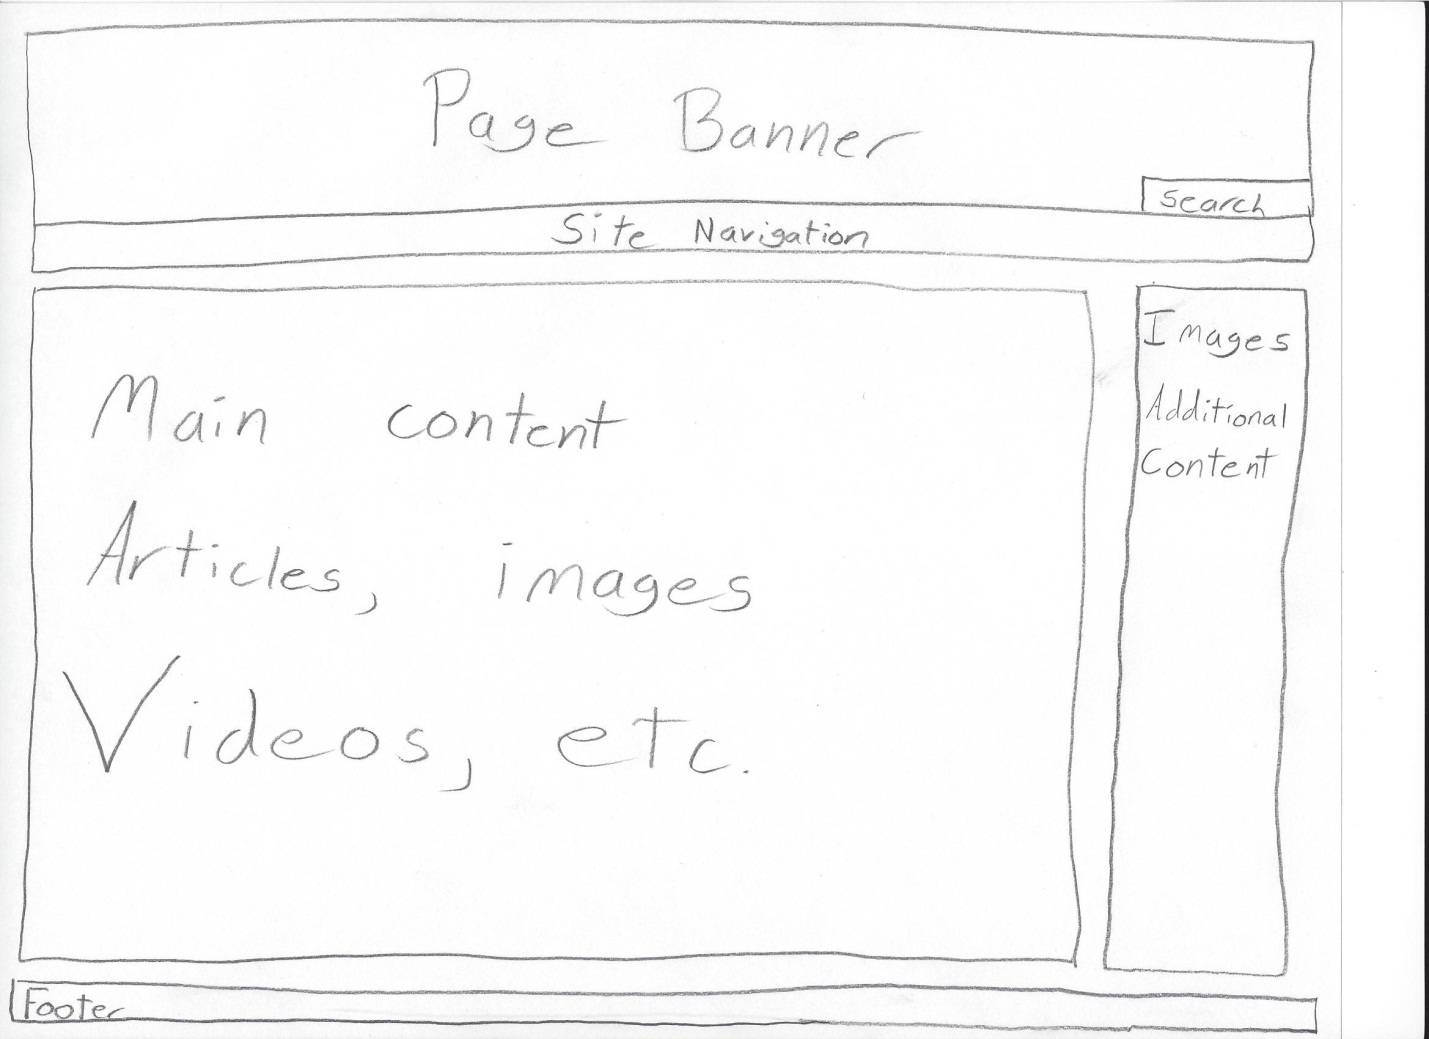 Page Banner
Search
Site Navigation
Main content
Articles, images
Videos, etc.
Images
Additional
Content
Footer